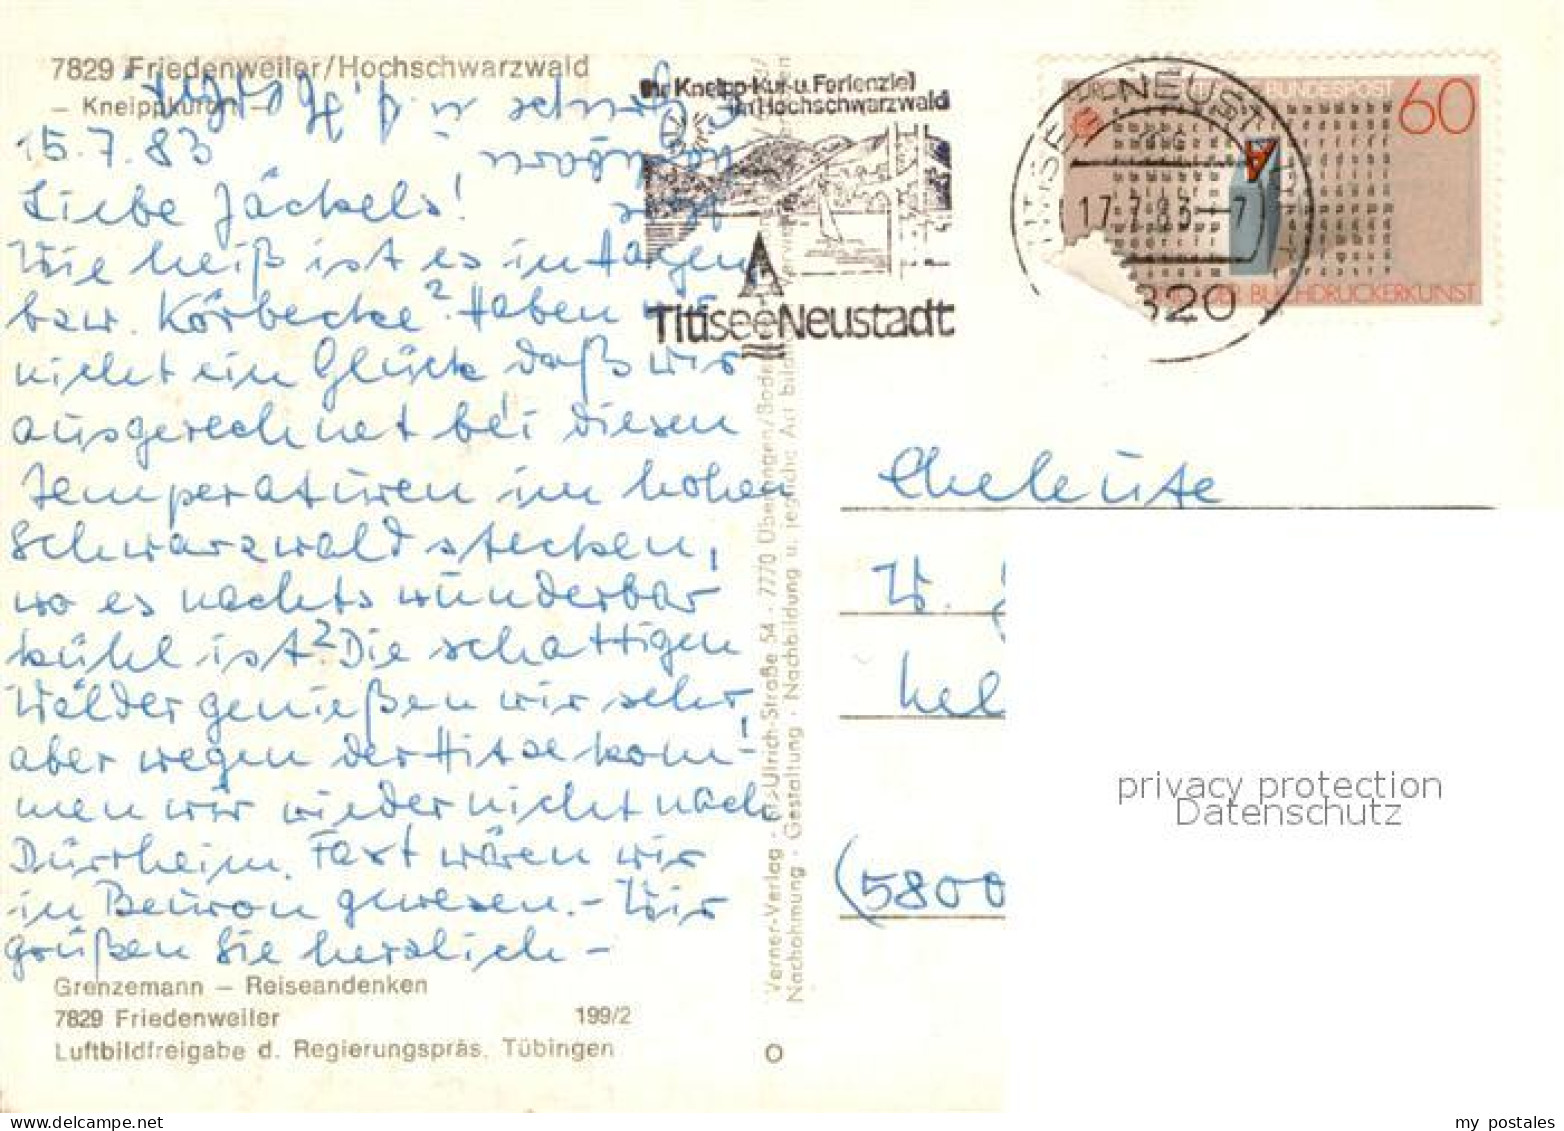 7829 Friedenweiler/Hochschwarzwald
– Kneippkurort –
15.7.83
Liebe Jäckels!
Wie heiß ist es in Hagen
bzw. Körbecke? Haben wir
nicht ein Glück daß wir
ausgerechnet bei diesen
Temperaturen im hohen
Schwarzwald stecken,
wo es nachts wunderbar
kühl ist? Die schattigen
Wälder genießen wir sehr,
aber wegen der Hitze kom-
men wir wieder nicht nach
Dürrheim. Fast wären wir
in Beuron gewesen. – Wir
grüßen Sie herzlich –
Grenzemann – Reiseandenken
7829 Friedenweiler 199/2
Luftbildfreigabe d. Regierungspräs. Tübingen
Ihr Kneipp-Kur-u. Ferienziel
im Hochschwarzwald
Titisee-Neustadt
Verner-Verlag · St.-Ulrich-Straße 54 · 7770 Überlingen/Bodensee
Nachahmung · Gestaltung · Nachbildung u. jegliche Art
NEUSTADT
17.7.83–7
7820
BUNDESPOST
60
BUCHDRUCKERKUNST
Eheleute
W.
(5800
privacy protection
Datenschutz
my postales